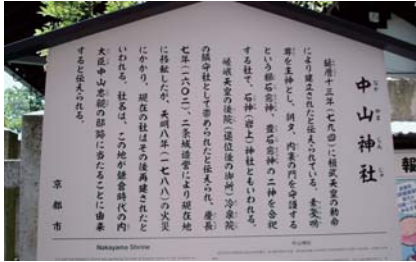 中山神社
なか やま じん じゃ
延暦十三年(七九四)に桓武天皇の勅命
により建立されたと伝えられている。素戔嗚
尊を主神とし、朝夕、内裏の門を守護する
という櫛石窓神、豊石窓神の二神を合祀
する社で、石神(岩上)神社ともいわれる。
嵯峨天皇の後院(退位後の御所)冷泉院
の鎮守社として崇められたと伝えられ、慶長
七年(一六〇二)、二条城造営により現在地
に移転したが、天明八年(一七八八)の火災
にかかり、現在の社はその後再建されたと
いわれる。社名は、この地が鎌倉時代の内
大臣中山忠親の邸跡に当たることに由来
すると伝えられる。
京都市
Nakayama Shrine
報